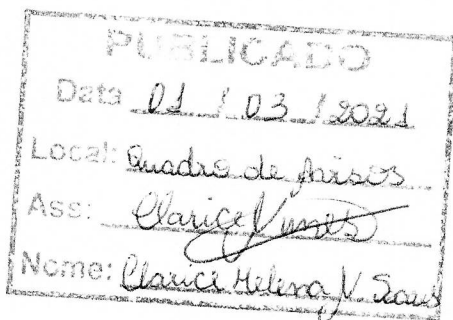 PUBLICADO
Data 01 / 03 / 2021
Local: Quadro de Avisos
Ass: Clarice
Nome: Clarice Helena V.